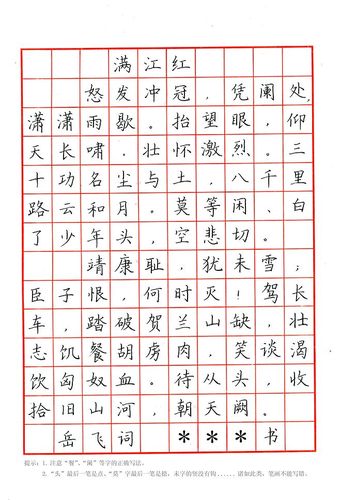 满江红
怒发冲冠，凭阑处，
潇潇雨歇。抬望眼，仰
天长啸，壮怀激烈。三
十功名尘与土，八千里
路云和月。莫等闲、白
了少年头，空悲切。
靖康耻，犹未雪；
臣子恨，何时灭！驾长
车，踏破贺兰山缺，壮
志饥餐胡虏肉，笑谈渴
饮匈奴血。待从头，收
拾旧山河，朝天阙。
岳飞词 ***书
提示：1. 注意“餐”、“阑”等字的正确写法。
2. “头”最后一笔是点，“莫”字最后一笔是捺，末字的竖没有钩......诸如此类，笔画不能写错。